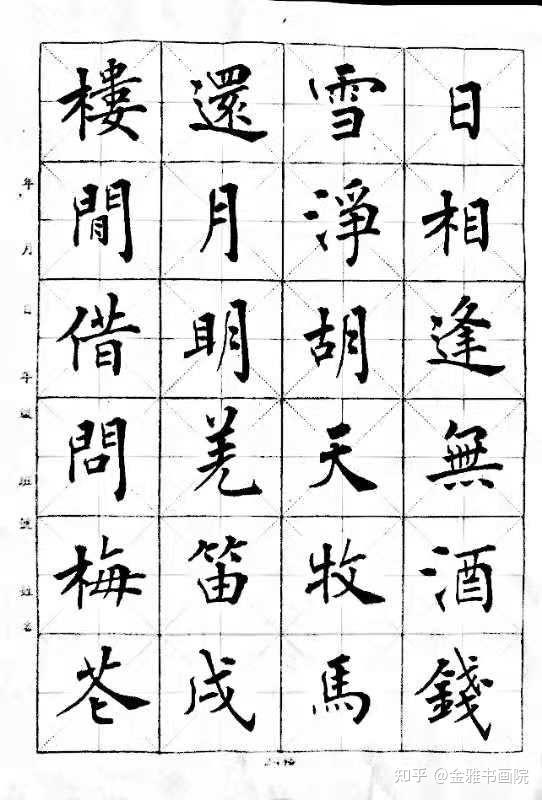 日相逢無酒錢
雪淨胡天牧馬
還月明羌笛戍
樓間借問梅花
年 月 日
知乎 @金雅书画院